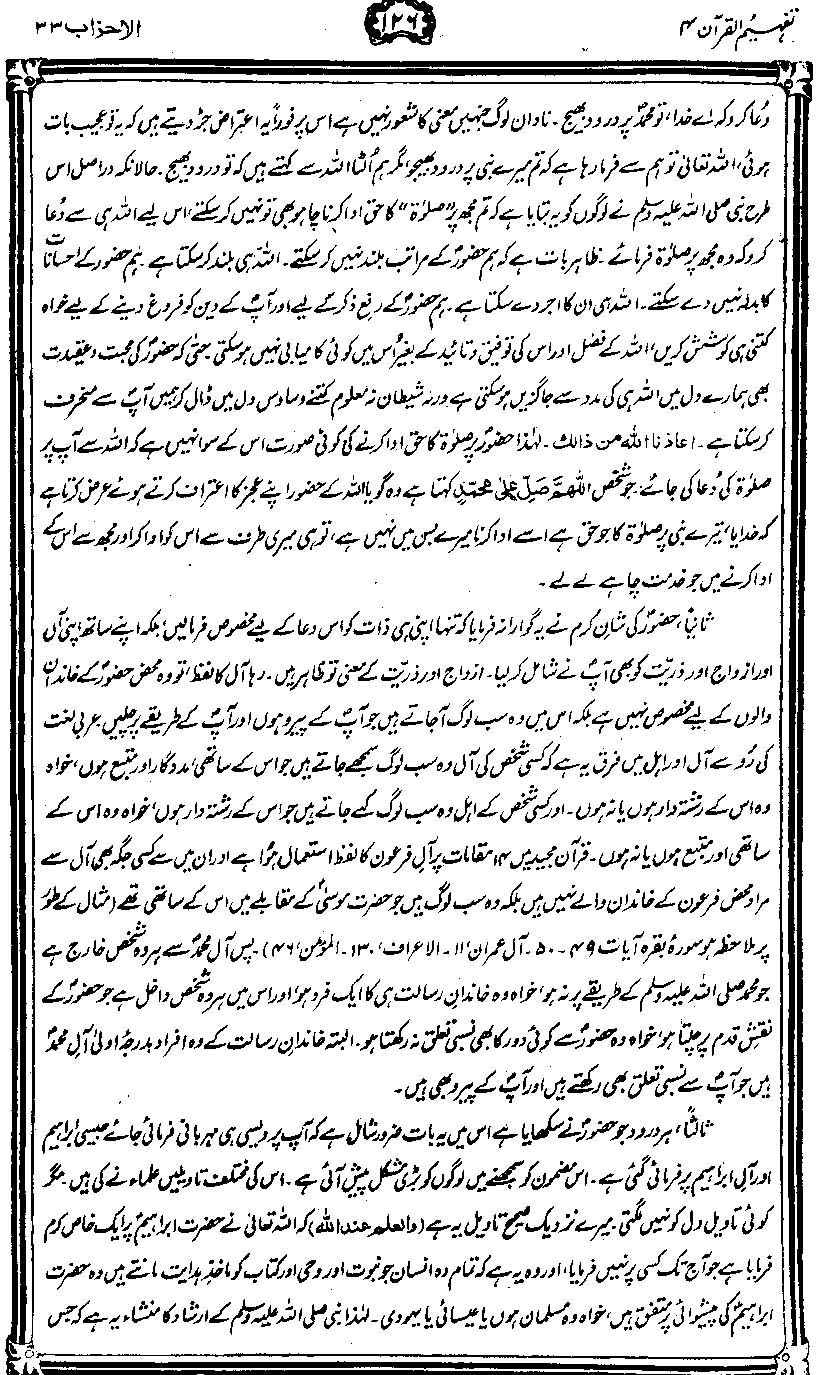 تفہیم القرآن ۴
۱۲۶
الاحزاب ۳۳
دُعا کرو کہ اے خدا، تو محمدؐ پر درود بھیج۔ نادان لوگ جنہیں معنی کا شعور نہیں ہے اس پر فوراً یہ اعتراض جڑ دیتے ہیں کہ یہ تو عجیب بات
ہوئی، اللہ تعالیٰ تو ہم سے فرما رہا ہے کہ تم میرے نبی پر درود بھیجو، مگر ہم اُلٹا اللہ سے کہتے ہیں کہ تو درود بھیج۔ حالانکہ دراصل اس
طرح نبی صلی اللہ علیہ وسلم نے لوگوں کو یہ بتایا ہے کہ تم مجھ پر ”صلوٰۃ“ کا حق ادا کرنا چاہو بھی تو نہیں کر سکتے، اس لیے اللہ ہی سے دُعا
کرو کہ وہ مجھ پر صلوٰۃ فرمائے۔ ظاہر بات ہے کہ ہم حضورؐ کے مراتب بلند نہیں کر سکتے۔ اللہ ہی بلند کر سکتا ہے۔ ہم حضورؐ کے احسانات
کا بدلہ نہیں دے سکتے۔ اللہ ہی ان کا اجر دے سکتا ہے۔ ہم حضورؐ کے رفع ذکر کے لیے اور آپؐ کے دین کو فروغ دینے کے لیے خواہ
کتنی ہی کوشش کریں، اللہ کے فضل اور اس کی توفیق و تائید کے بغیر اُس میں کوئی کامیابی نہیں ہو سکتی حتیٰ کہ حضورؐ کی محبت و عقیدت
بھی ہمارے دل میں اللہ ہی کی مدد سے جاگزیں ہو سکتی ہے ورنہ شیطان نہ معلوم کتنے وساوس دل میں ڈال کر ہمیں آپؐ سے منحرف
کر سکتا ہے۔ اعاذنا اللہ من ذالک۔ لہٰذا حضورؐ پر صلوٰۃ کا حق ادا کرنے کی کوئی صورت اس کے سوا نہیں ہے کہ اللہ سے آپ پر
صلوٰۃ کی دُعا کی جائے۔ جو شخص اَللّٰھُمَّ صَلِّ عَلٰی مُحَمَّدٍ کہتا ہے وہ گویا اللہ کے حضور اپنے عجز کا اعتراف کرتے ہوئے عرض کرتا ہے
کہ خدایا، تیرے نبی پر صلوٰۃ کا جو حق ہے اسے ادا کرنا میرے بس میں نہیں ہے، تو ہی میری طرف سے اس کو ادا کر اور مجھ سے اس کے
ادا کرنے میں جو خدمت چاہے لے لے۔
ثانیاً، حضورؐ کی شانِ کرم نے یہ گوارا نہ فرمایا کہ تنہا اپنی ہی ذات کو اس دعا کے لیے مخصوص فرمالیں، بلکہ اپنے ساتھ اپنی آل
اور ازواج اور ذریّت کو بھی آپؐ نے شامل کر لیا۔ ازواج اور ذریّت کے معنی تو ظاہر ہیں۔ رہا آل کا لفظ، تو وہ محض حضورؐ کے خاندان
والوں کے لیے مخصوص نہیں ہے بلکہ اس میں وہ سب لوگ آجاتے ہیں جو آپؐ کے پیرو ہوں اور آپؐ کے طریقے پر چلیں۔ عربی لغت
کی رُو سے آل اور اہل میں فرق یہ ہے کہ کسی شخص کی آل وہ سب لوگ سمجھے جاتے ہیں جو اس کے ساتھی، مددگار اور متبع ہوں، خواہ
وہ اس کے رشتہ دار ہوں یا نہ ہوں۔ اور کسی شخص کے اہل وہ سب لوگ کہے جاتے ہیں جو اس کے رشتہ دار ہوں، خواہ وہ اس کے
ساتھی اور متبع ہوں یا نہ ہوں۔ قرآن مجید میں ۱۴ مقامات پر آلِ فرعون کا لفظ استعمال ہُوا ہے اور ان میں سے کسی جگہ بھی آل سے
مراد محض فرعون کے خاندان والے نہیں ہیں بلکہ وہ سب لوگ ہیں جو حضرت موسیٰؑ کے مقابلے میں اس کے ساتھی تھے (مثال کے طور
پر ملاحظہ ہو سورۂ بقرہ آیات ۴۹-۵۰۔ آل عمران، ۱۱۔ الاعراف، ۱۳۰۔ المؤمن، ۴۶)۔ پس آل محمدؐ سے ہر وہ شخص خارج ہے
جو محمد صلی اللہ علیہ وسلم کے طریقے پر نہ ہو، خواہ وہ خاندانِ رسالت ہی کا ایک فرد ہو، اور اس میں ہر وہ شخص داخل ہے جو حضورؐ کے
نقشِ قدم پر چلتا ہو، خواہ وہ حضورؐ سے کوئی دور کا بھی نسبی تعلق نہ رکھتا ہو۔ البتہ خاندانِ رسالت کے وہ افراد بدرجۂ اولیٰ آلِ محمدؐ
ہیں جو آپؐ سے نسبی تعلق بھی رکھتے ہیں اور آپؐ کے پیرو بھی ہیں۔
ثالثاً، ہر درود جو حضورؐ نے سکھایا ہے اس میں یہ بات ضرور شامل ہے کہ آپ پر ویسی ہی مہربانی فرمائی جائے جیسی ابراہیم
اور آلِ ابراہیم پر فرمائی گئی ہے۔ اس مضمون کو سمجھنے میں لوگوں کو بڑی مشکل پیش آئی ہے۔ اس کی مختلف تاویلیں علماء نے کی ہیں۔ مگر
کوئی تاویل دل کو نہیں لگتی۔ میرے نزدیک صحیح تاویل یہ ہے (والعلم عند اللہ) کہ اللہ تعالیٰ نے حضرت ابراہیمؑ پر ایک خاص کرم
فرمایا ہے جو آج تک کسی پر نہیں فرمایا، اور وہ یہ ہے کہ تمام وہ انسان جو نبوت اور وحی اور کتاب کو ماخذِ ہدایت مانتے ہیں وہ حضرت
ابراہیمؑ کی پیشوائی پر متفق ہیں، خواہ وہ مسلمان ہوں یا عیسائی یا یہودی۔ لہٰذا نبی صلی اللہ علیہ وسلم کے ارشاد کا منشاء یہ ہے کہ جس